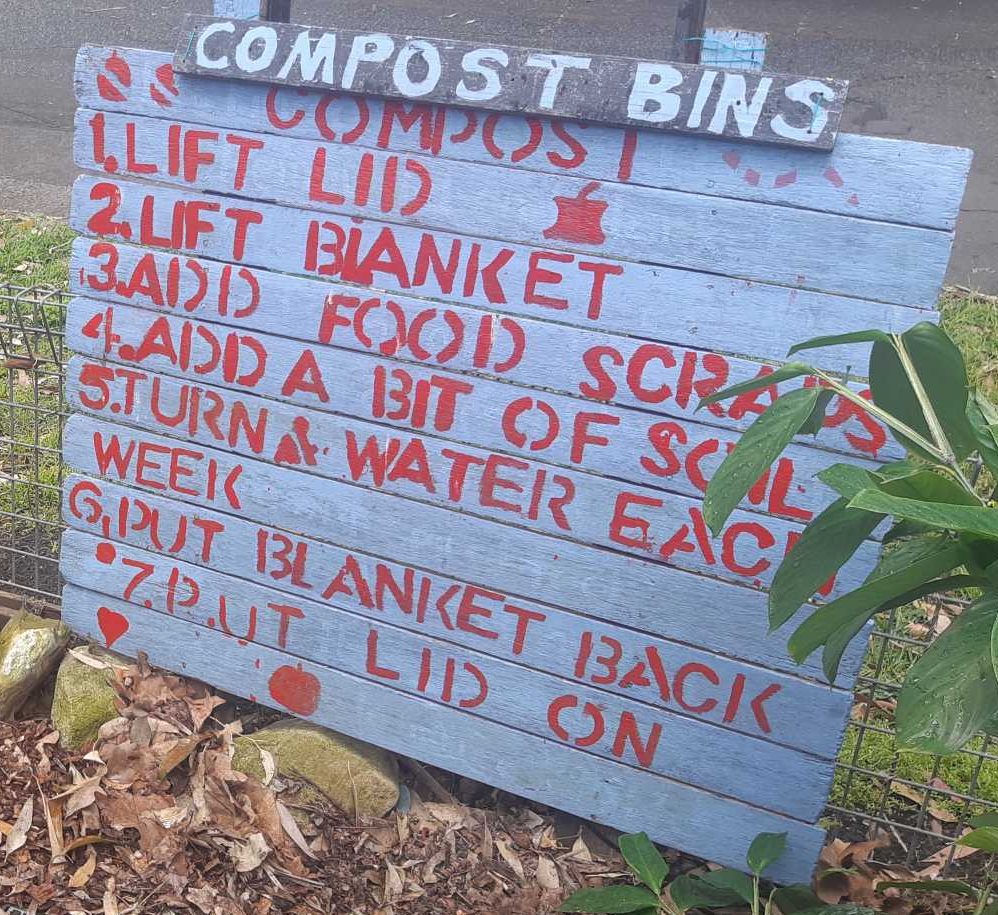 COMPOST BINS
COMPOST
1. LIFT LID
2. LIFT BLANKET
3. ADD FOOD SCRAPS
4. ADD A BIT OF SOIL
5. TURN & WATER EACH
WEEK
6. PUT BLANKET BACK
7. PUT LID ON